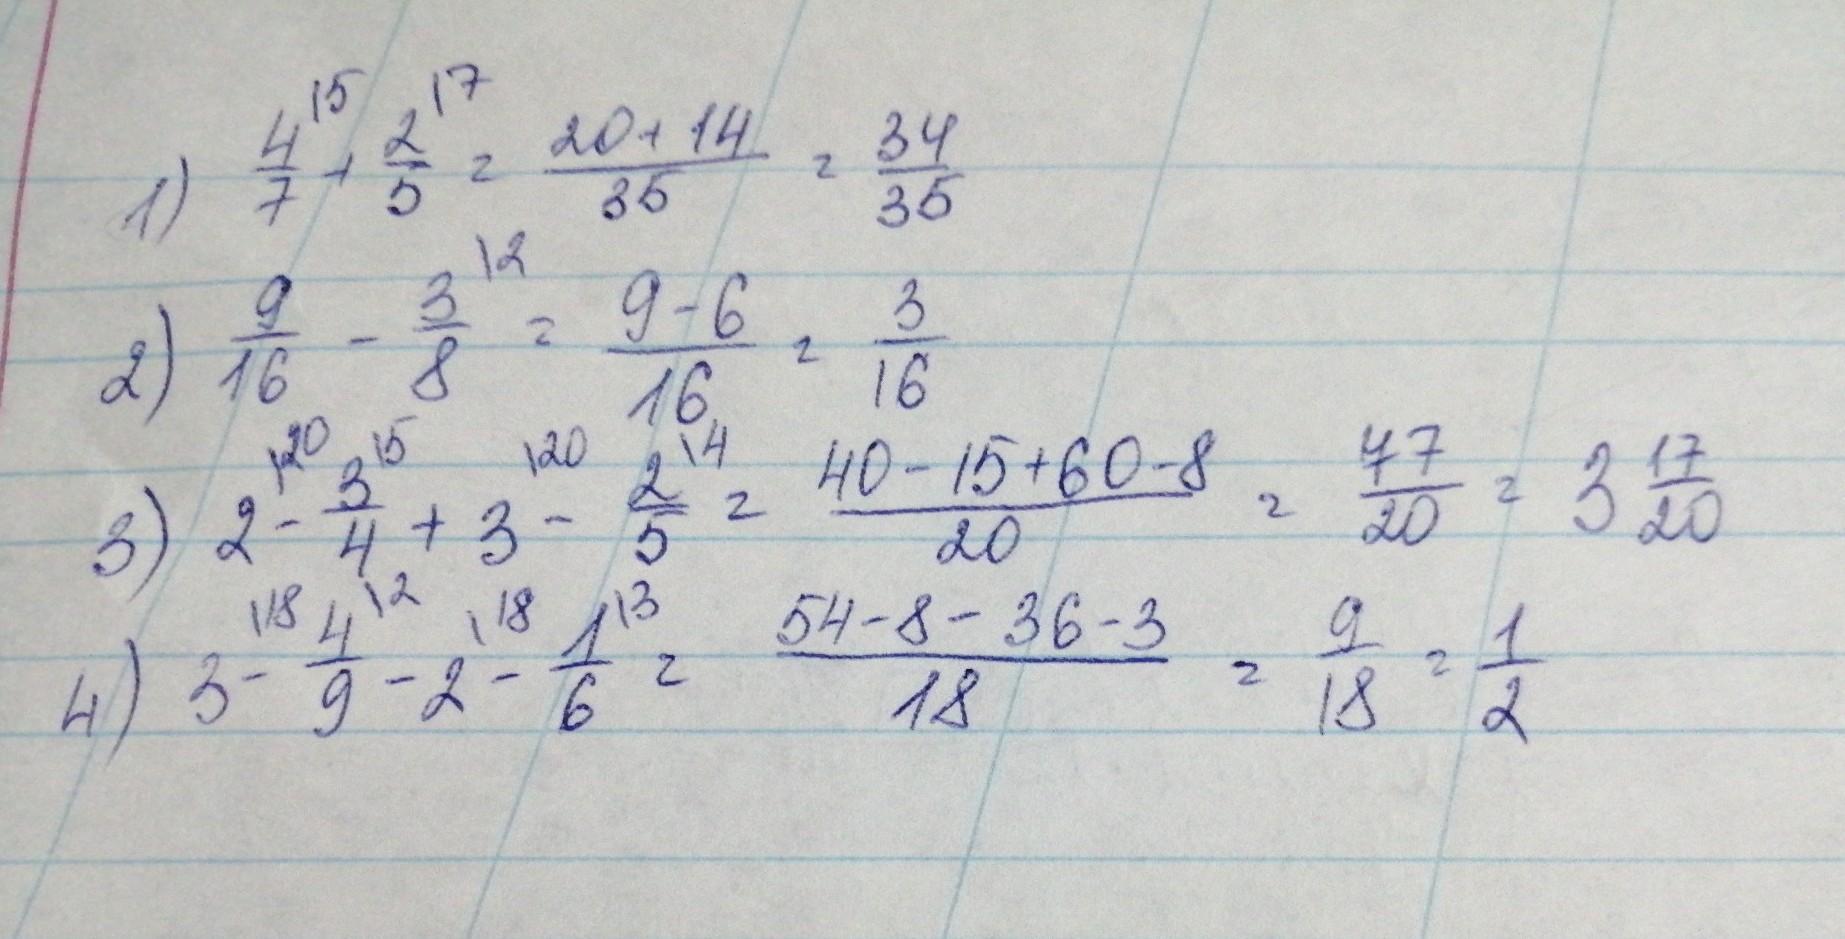 1) 4/7 \5 + 2/5 \7 = (20+14)/35 = 34/35
2) 9/16 - 3/8 \2 = (9-6)/16 = 3/16
3) 2 \20 - 3/4 \5 + 3 \20 - 2/5 \4 = (40-15+60-8)/20 = 77/20 = 3 17/20
4) 3 \18 - 4/9 \2 - 2 \18 - 1/6 \3 = (54-8-36-3)/18 = 9/18 = 1/2